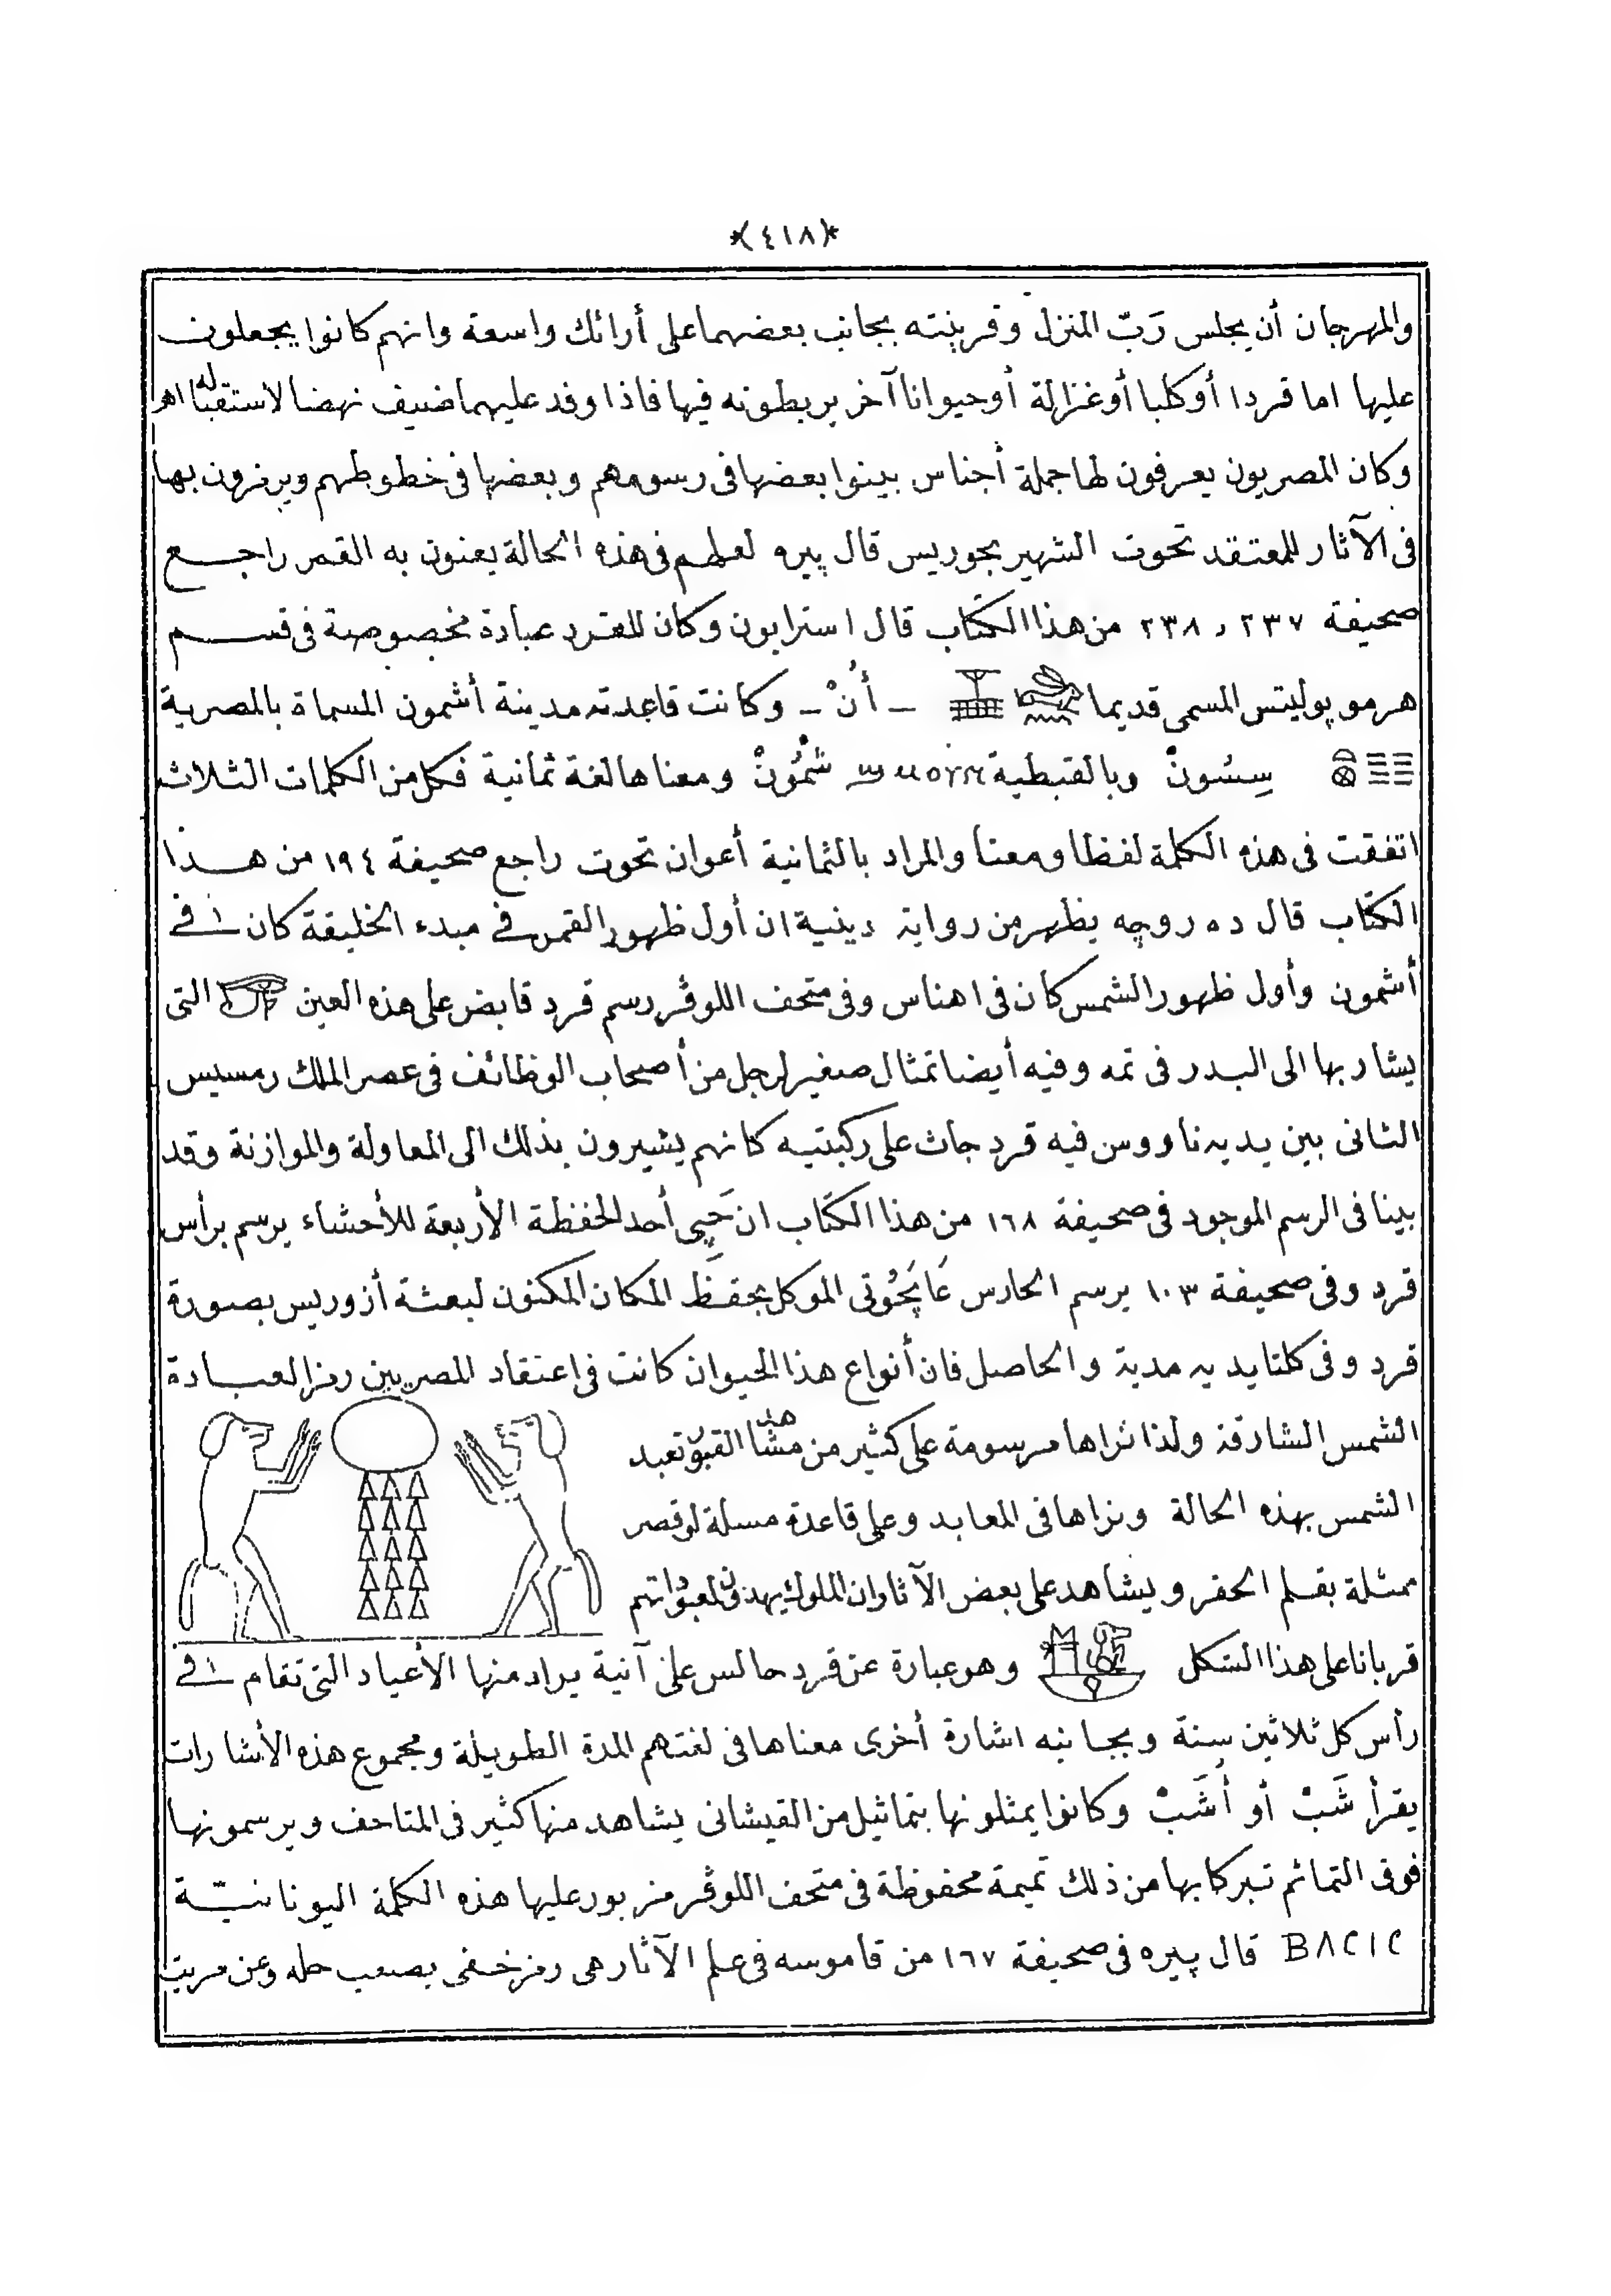 *(٤١٨)*
والمهرجان أن يجلس رَبّ المنزل وقرينته بجانب بعضهما على أرائك واسعة وانهم كانوا يجعلون
عليها اما قردا أو كلبا أو غزالة أو حيوانا آخر يربطونه فيها فاذا وفد عليهما ضيف نهضا لاستقباله اهـ
وكان المصريون يعرفون لها جملة أجناس بينوا بعضها فى رسومهم وبعضها فى خطوطهم ويرمزون بها
فى الآثار للمعتقد تحوت الشهير بجوريس قال پيره لعلهم فى هذه الحالة يعنون به القمر راجع
صحيفة ٢٣٧ و ٢٣٨ من هذا الكتاب قال استرابون وكان للقرد عبادة مخصوصة فى قسم
هرموپوليتس المسمى قديما ـ أُنْ ـ وكانت قاعدته مدينة أشمون المسماة بالمصرية
سِسُونْ وبالقبطية ϣⲙⲟⲩⲛ شْمُونْ ومعناها لغة ثمانية فكل من الكلمات الثلاث
اتفقت فى هذه الكلمة لفظا ومعنا والمراد بالثمانية أعوان تحوت راجع صحيفة ١٩٤ من هذا
الكتاب قال ده روچه يظهر من رواية دينية ان أول ظهور القمر فى مبدء الخليقة كان فى
أشمون وأول ظهور الشمس كان فى اهناس وفى متحف اللوڤر رسم قرد قابض على هذه العين التى
يشار بها الى البدر فى تمه وفيه أيضا تمثال صغير لرجل من أصحاب الوظائف فى عصر الملك رمسيس
الثانى بين يديه ناووس فيه قرد جاث على ركبتيه كانهم يشيرون بذلك الى المعاولة والموازنة وقد
بينا فى الرسم الموجود فى صحيفة ١٦٨ من هذا الكتاب ان حَپِى أحد الحفظة الأربعة للأحشاء يرسم برأس
قرد وفى صحيفة ١٠٣ يرسم الحارس عَاپَحُوتى الموكل بحفظ المكان المكنون لبعثة أزوريس بصورة
قرد وفى كلتا يديه مدية والحاصل فان أنواع هذا الحيوان كانت فى اعتقاد المصريين رمزا لعبادة
الشمس الشارقة ولذا نراها مرسومة على كثير من مشاهد القبور تعبد
الشمس بهذه الحالة ونراها فى المعابد وعلى قاعدة مسلة لوقصر
ممثلة بقلم الحفر ويشاهد على بعض الآثار ان الملوك يهدون لمعبوداتهم
قربانا على هذا الشكل وهو عبارة عن قرد جالس على آنية يراد منها الأعياد التى تقام فى
رأس كل ثلاثين سنة وبجانبه اشارة أخرى معناها فى لغتهم المدة الطويلة ومجموع هذه الأشارات
يقرأ شَبْ أو أُشَبْ وكانوا يمثلونها بتماثيل من القيشانى يشاهد منها كثير فى المتاحف ويرسمونها
فوق التمائم تبركا بها من ذلك تميمة محفوظة فى متحف اللوڤر مزبور عليها هذه الكلمة اليونانيّة
BACIC قال پيره فى صحيفة ١٦٧ من قاموسه فى علم الآثار هى رمز خفى يصعب حله وعن مريت